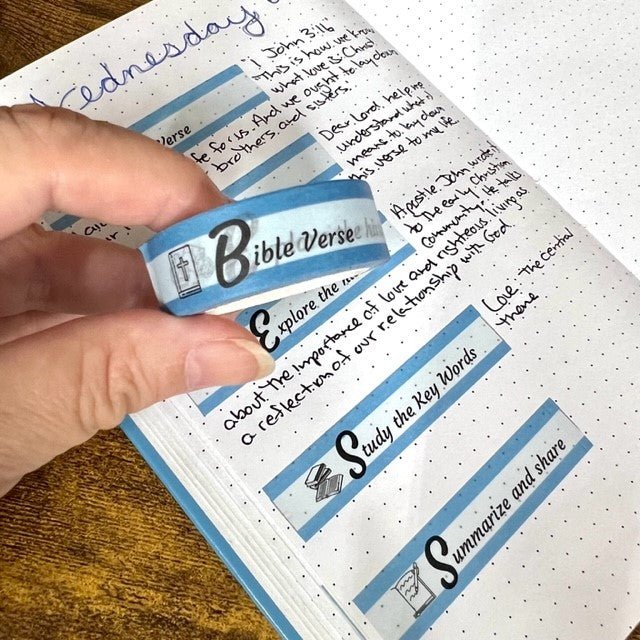 Wednesday
1 John 3:16
"This is how we know
what love is: Christ
life for us. And we ought to lay down
brothers and sisters."
Verse
Dear Lord, help me
understand what it
means to lay down
this verse to my life.
Bible Verse
Apostle John wrote
to the early Christian
community. He talks
about the importance of love and righteous living as
a reflection of our relationship with God
Explore the
Love: The central
theme
Study the Key Words
Summarize and share